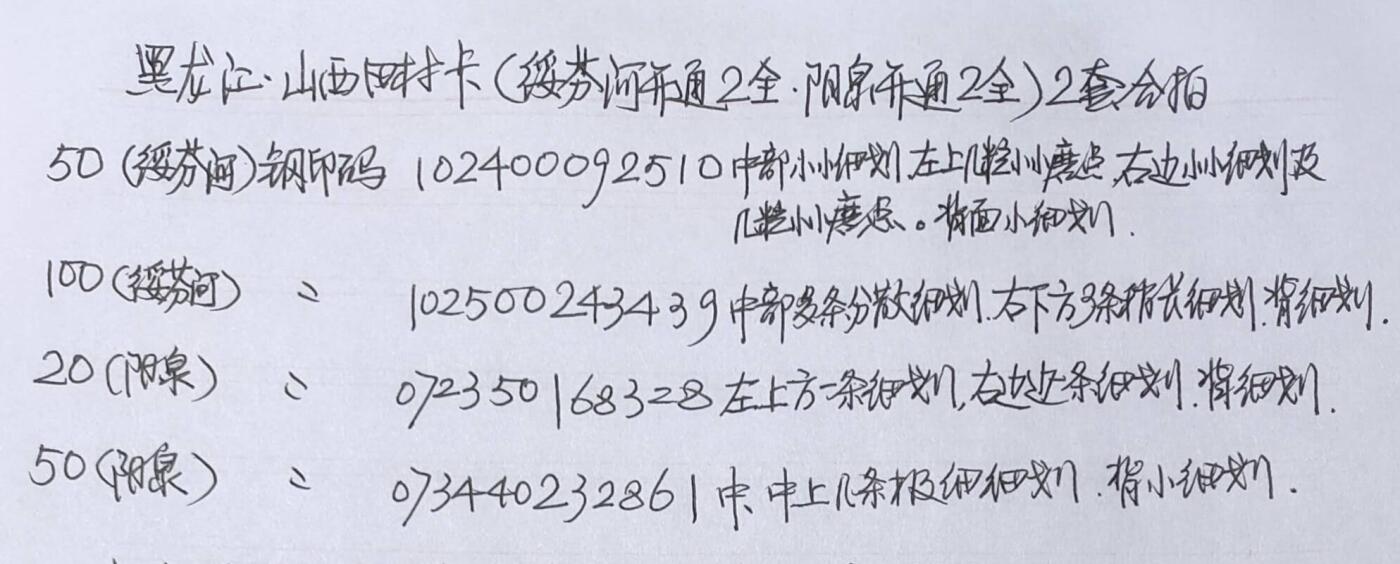 黑龙江·山西田村卡(绥芬河开通2全·阳泉开通2全)2套合拍
50(绥芬河)钢印码 102400092510中部小小细划.左上几粒小小磨点.右边小小细划及
几粒小小磨点。背面小细划.
100(绥芬河) 〃 102500243439中部多条分散细划.右下方3条稍长细划.背细划.
20(阳泉) 〃 072350168328左上方一条细划,右边近一条细划.背细划.
50(阳泉) 〃 073440232861中、中上几条极细细划.背小细划.